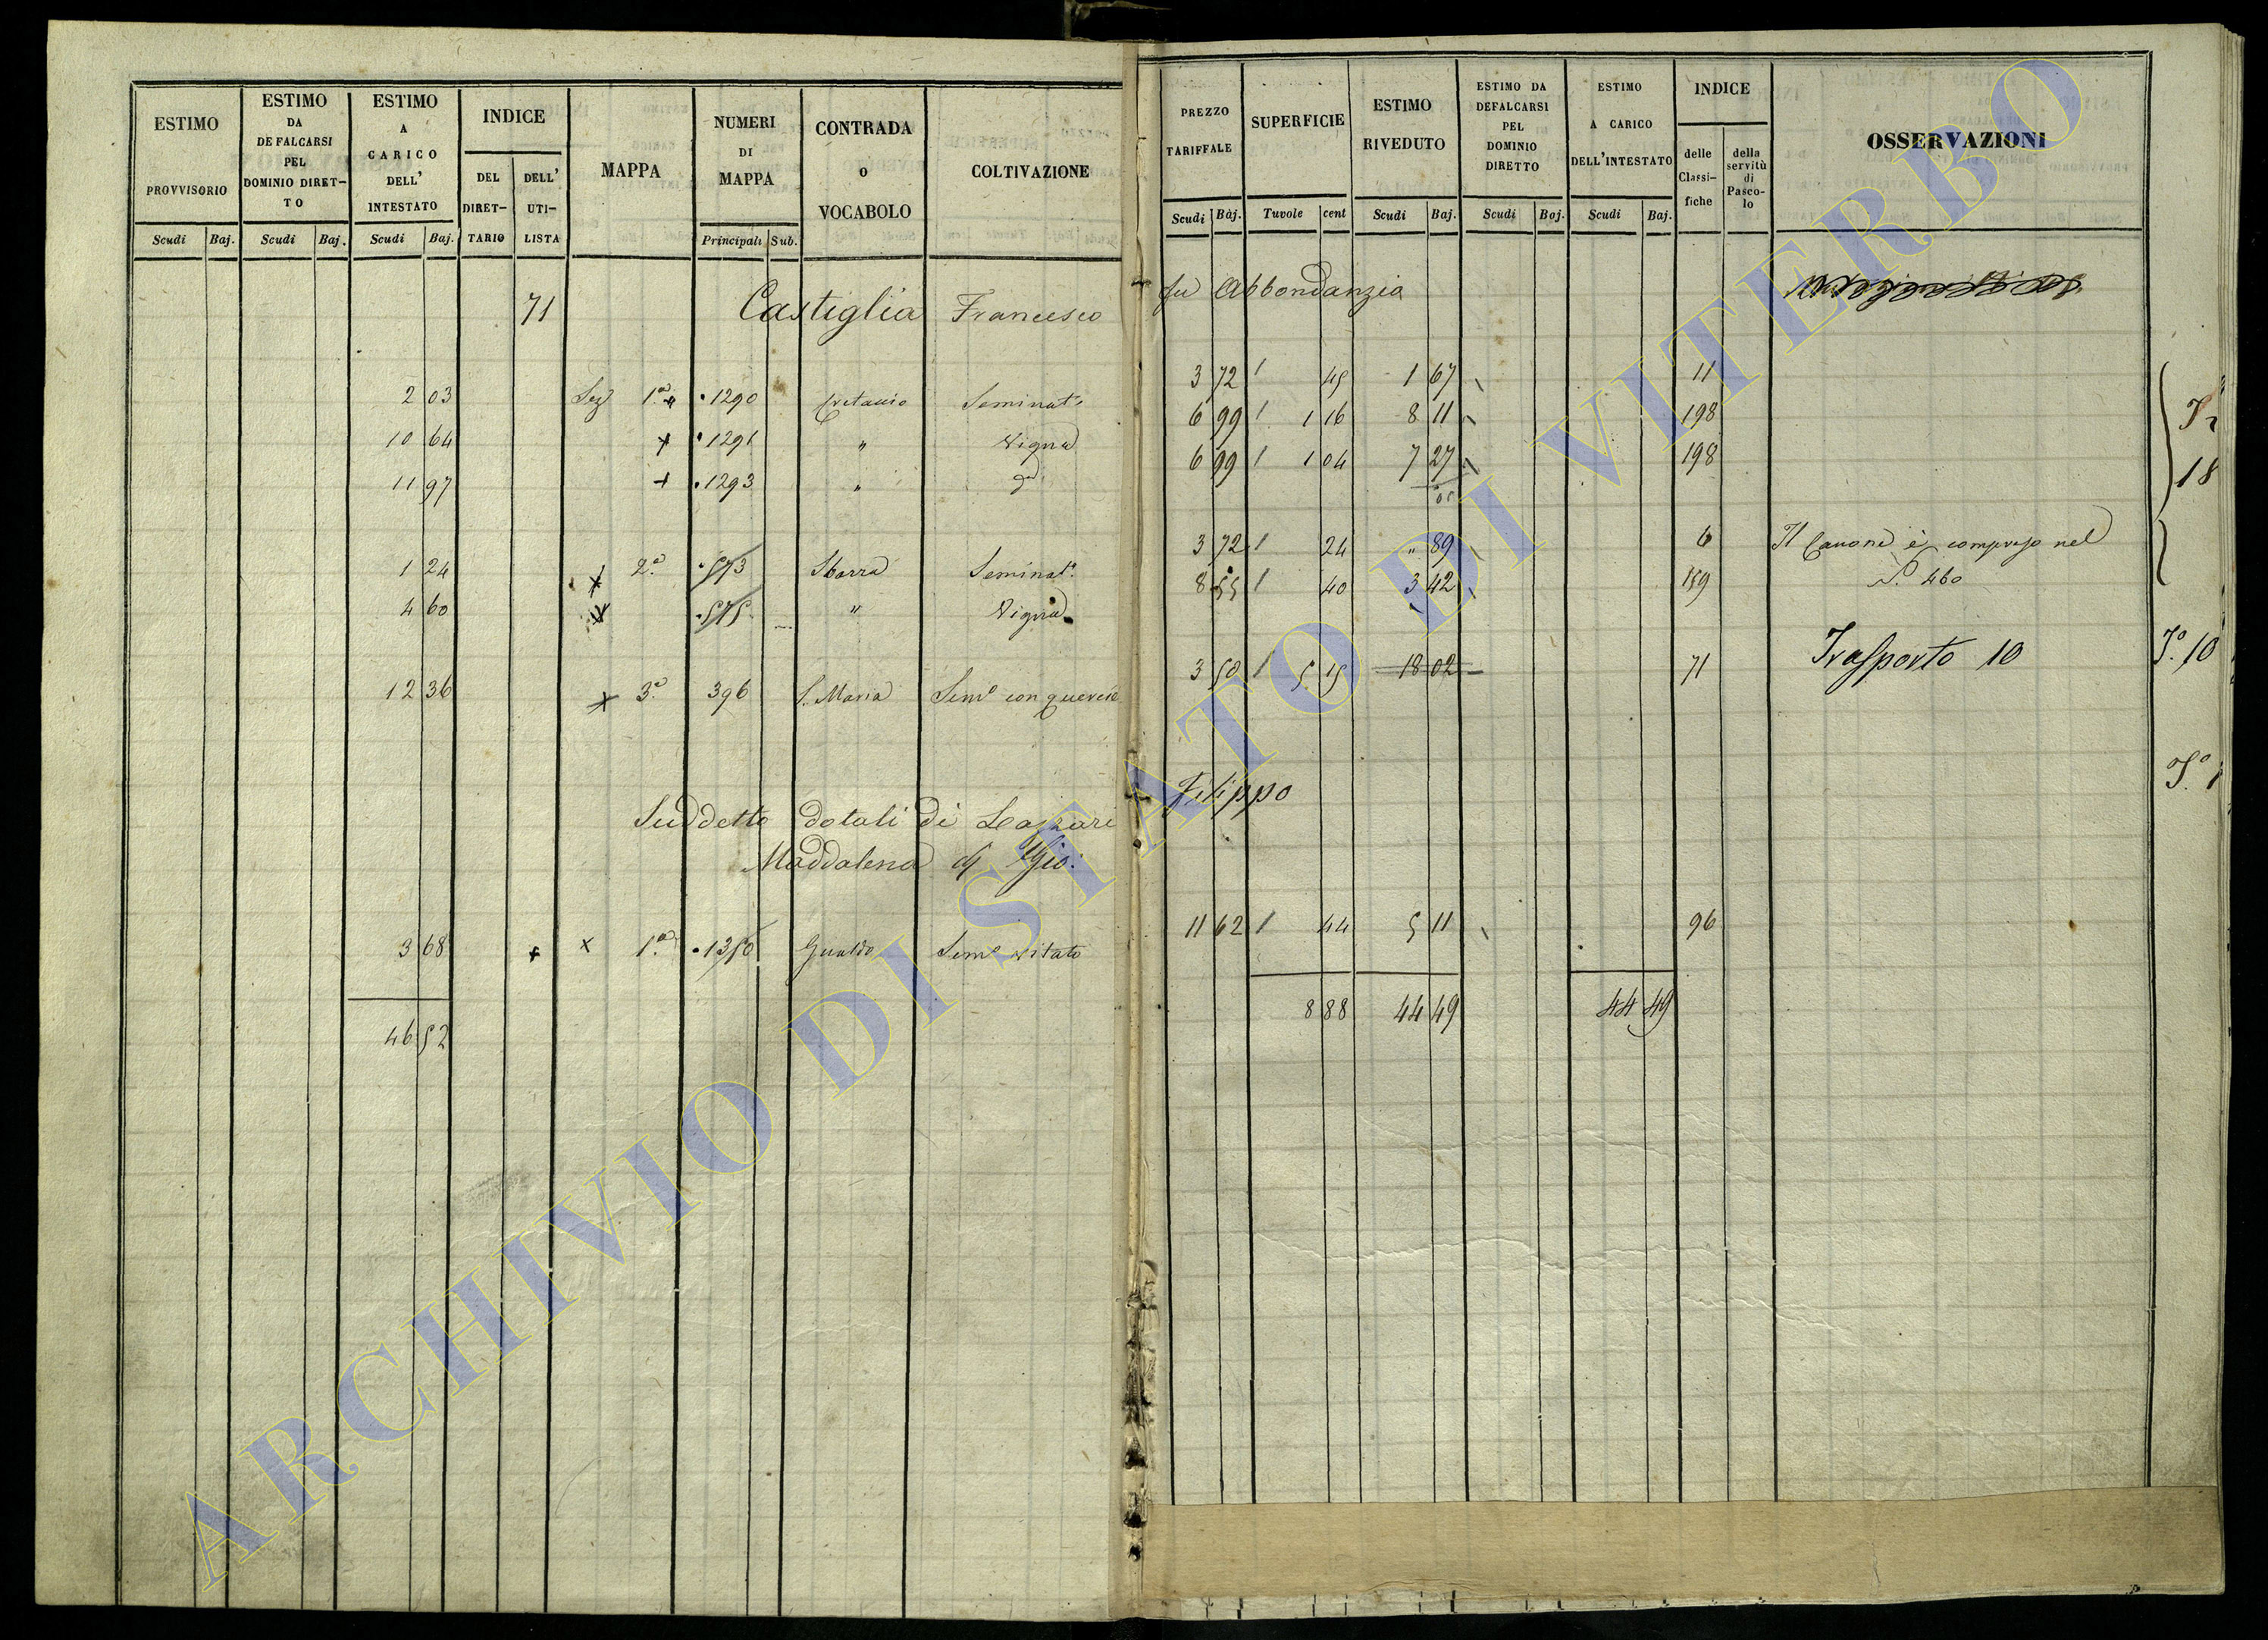 ESTIMO PROVVISORIO Scudi Baj.
ESTIMO DA DEFALCARSI PEL DOMINIO DIRET-TO Scudi Baj.
ESTIMO A CARICO DELL' INTESTATO Scudi Baj.
INDICE DEL DIRET-TARIO DELL' UTI-LISTA
MAPPA
NUMERI DI MAPPA Principali Sub.
CONTRADA O VOCABOLO
COLTIVAZIONE
71 Castiglia Francesco
2 03 Sez 1.a 1290 Cretaccio Seminat.
10 64 x 1291 " Vigna
11 97 x 1293 " da
1 24 x 2.a 573 Sbarra Seminat.
4 60 x 575 " Vigna
12 36 x 3.a 396 S. Maria Sem.o con querce
Suddetto dotali di Lazzari
Maddalena di Gio:
3 68 x x 1.a 1350 Gualdo Sem.o vitato
46 52
PREZZO TARIFFALE Scudi Baj.
SUPERFICIE Tavole cent
ESTIMO RIVEDUTO Scudi Baj.
ESTIMO DA DEFALCARSI PEL DOMINIO DIRETTO Scudi Baj.
ESTIMO A CARICO DELL'INTESTATO Scudi Baj.
INDICE delle Classi-fiche della servitù di Pasco-lo
OSSERVAZIONI
fu Abbondanzio
3 72 1 45 1 67 11
6 99 1 1 16 8 11 198
6 99 1 1 04 7 27 198
05
3 72 1 24 " 89 6 Il Canone è compreso nel
8 55 1 40 3 42 159 N. 460
3 50 1 5 15 18 02 71 Trasporto 10 T.o 10
Filippo
11 62 1 44 5 11 96
8 88 44 49 44 49
18
ARCHIVIO DI STATO DI VITERBO